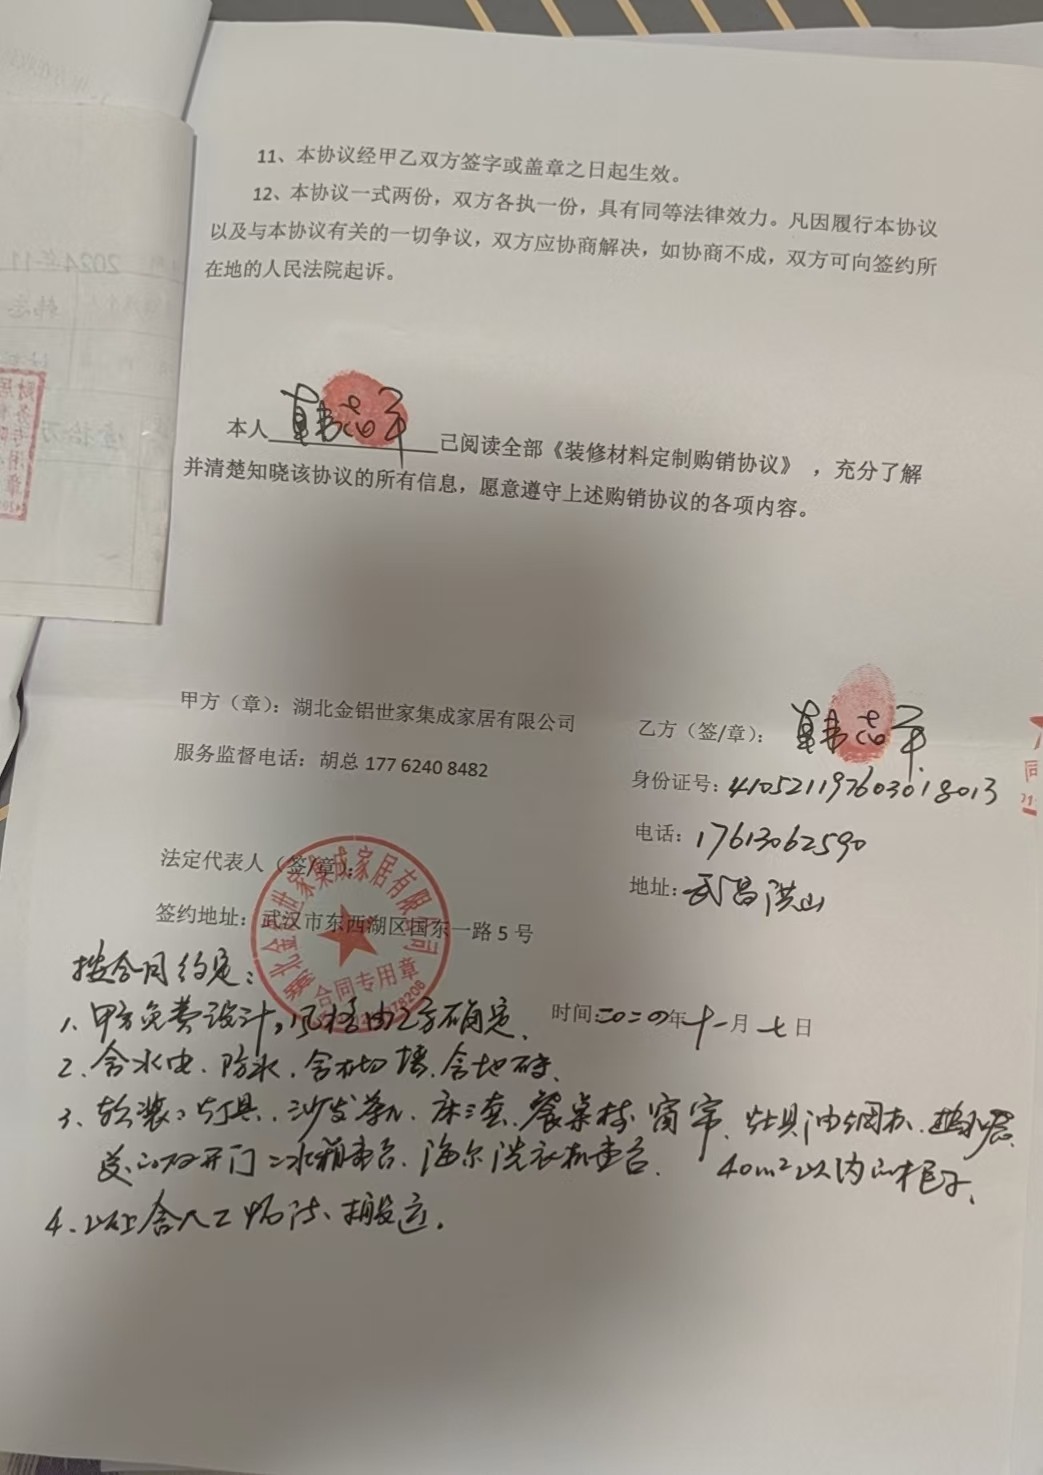 11、本协议经甲乙双方签字或盖章之日起生效。
12、本协议一式两份，双方各执一份，具有同等法律效力。凡因履行本协议
以及与本协议有关的一切争议，双方应协商解决，如协商不成，双方可向签约所
在地的人民法院起诉。
本人韩志平已阅读全部《装修材料定制购销协议》，充分了解
并清楚知晓该协议的所有信息，愿意遵守上述购销协议的各项内容。
甲方（章）：湖北金铝世家集成家居有限公司
乙方（签/章）：韩志平
服务监督电话：胡总 177 6240 8482
身份证号：410521197603018013
电话：17613062590
法定代表人（签/章）：
地址：武昌洪山
签约地址：武汉市东西湖区国东一路 5 号
湖北金铝世家集成家居有限公司
合同专用章
时间：二〇二四年十一月七日
按合同约定：
1、甲方免费设计，风格由乙方确定、
2、含水电、防水、含砌墙、含地砖、
3、软装：灯具、沙发茶几、床三套、餐桌椅、窗帘、灶具油烟机、热水器、
送双开门冰箱壹台、海尔洗衣机壹台、40m²以内柜子、
4、以上含人工、搬运。
2024年11